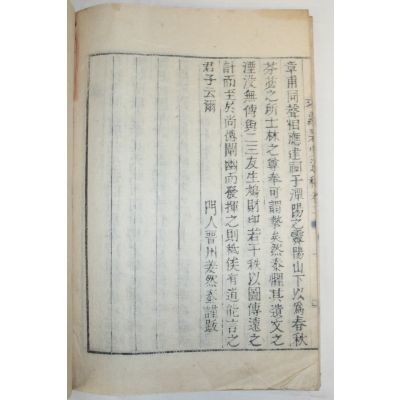 章甫同聲相應建祠于潭陽之雲陽山下以爲春秋
芬苾之所士林之尊奉可謂摯矣然泰懼其遺文之
湮沒無傳與二三友生鳩財印若干秩以圖傳遠之
計而至於尚德闡幽而發揮之則秪俟有道能言之
君子云爾
門人晋州姜然泰謹跋